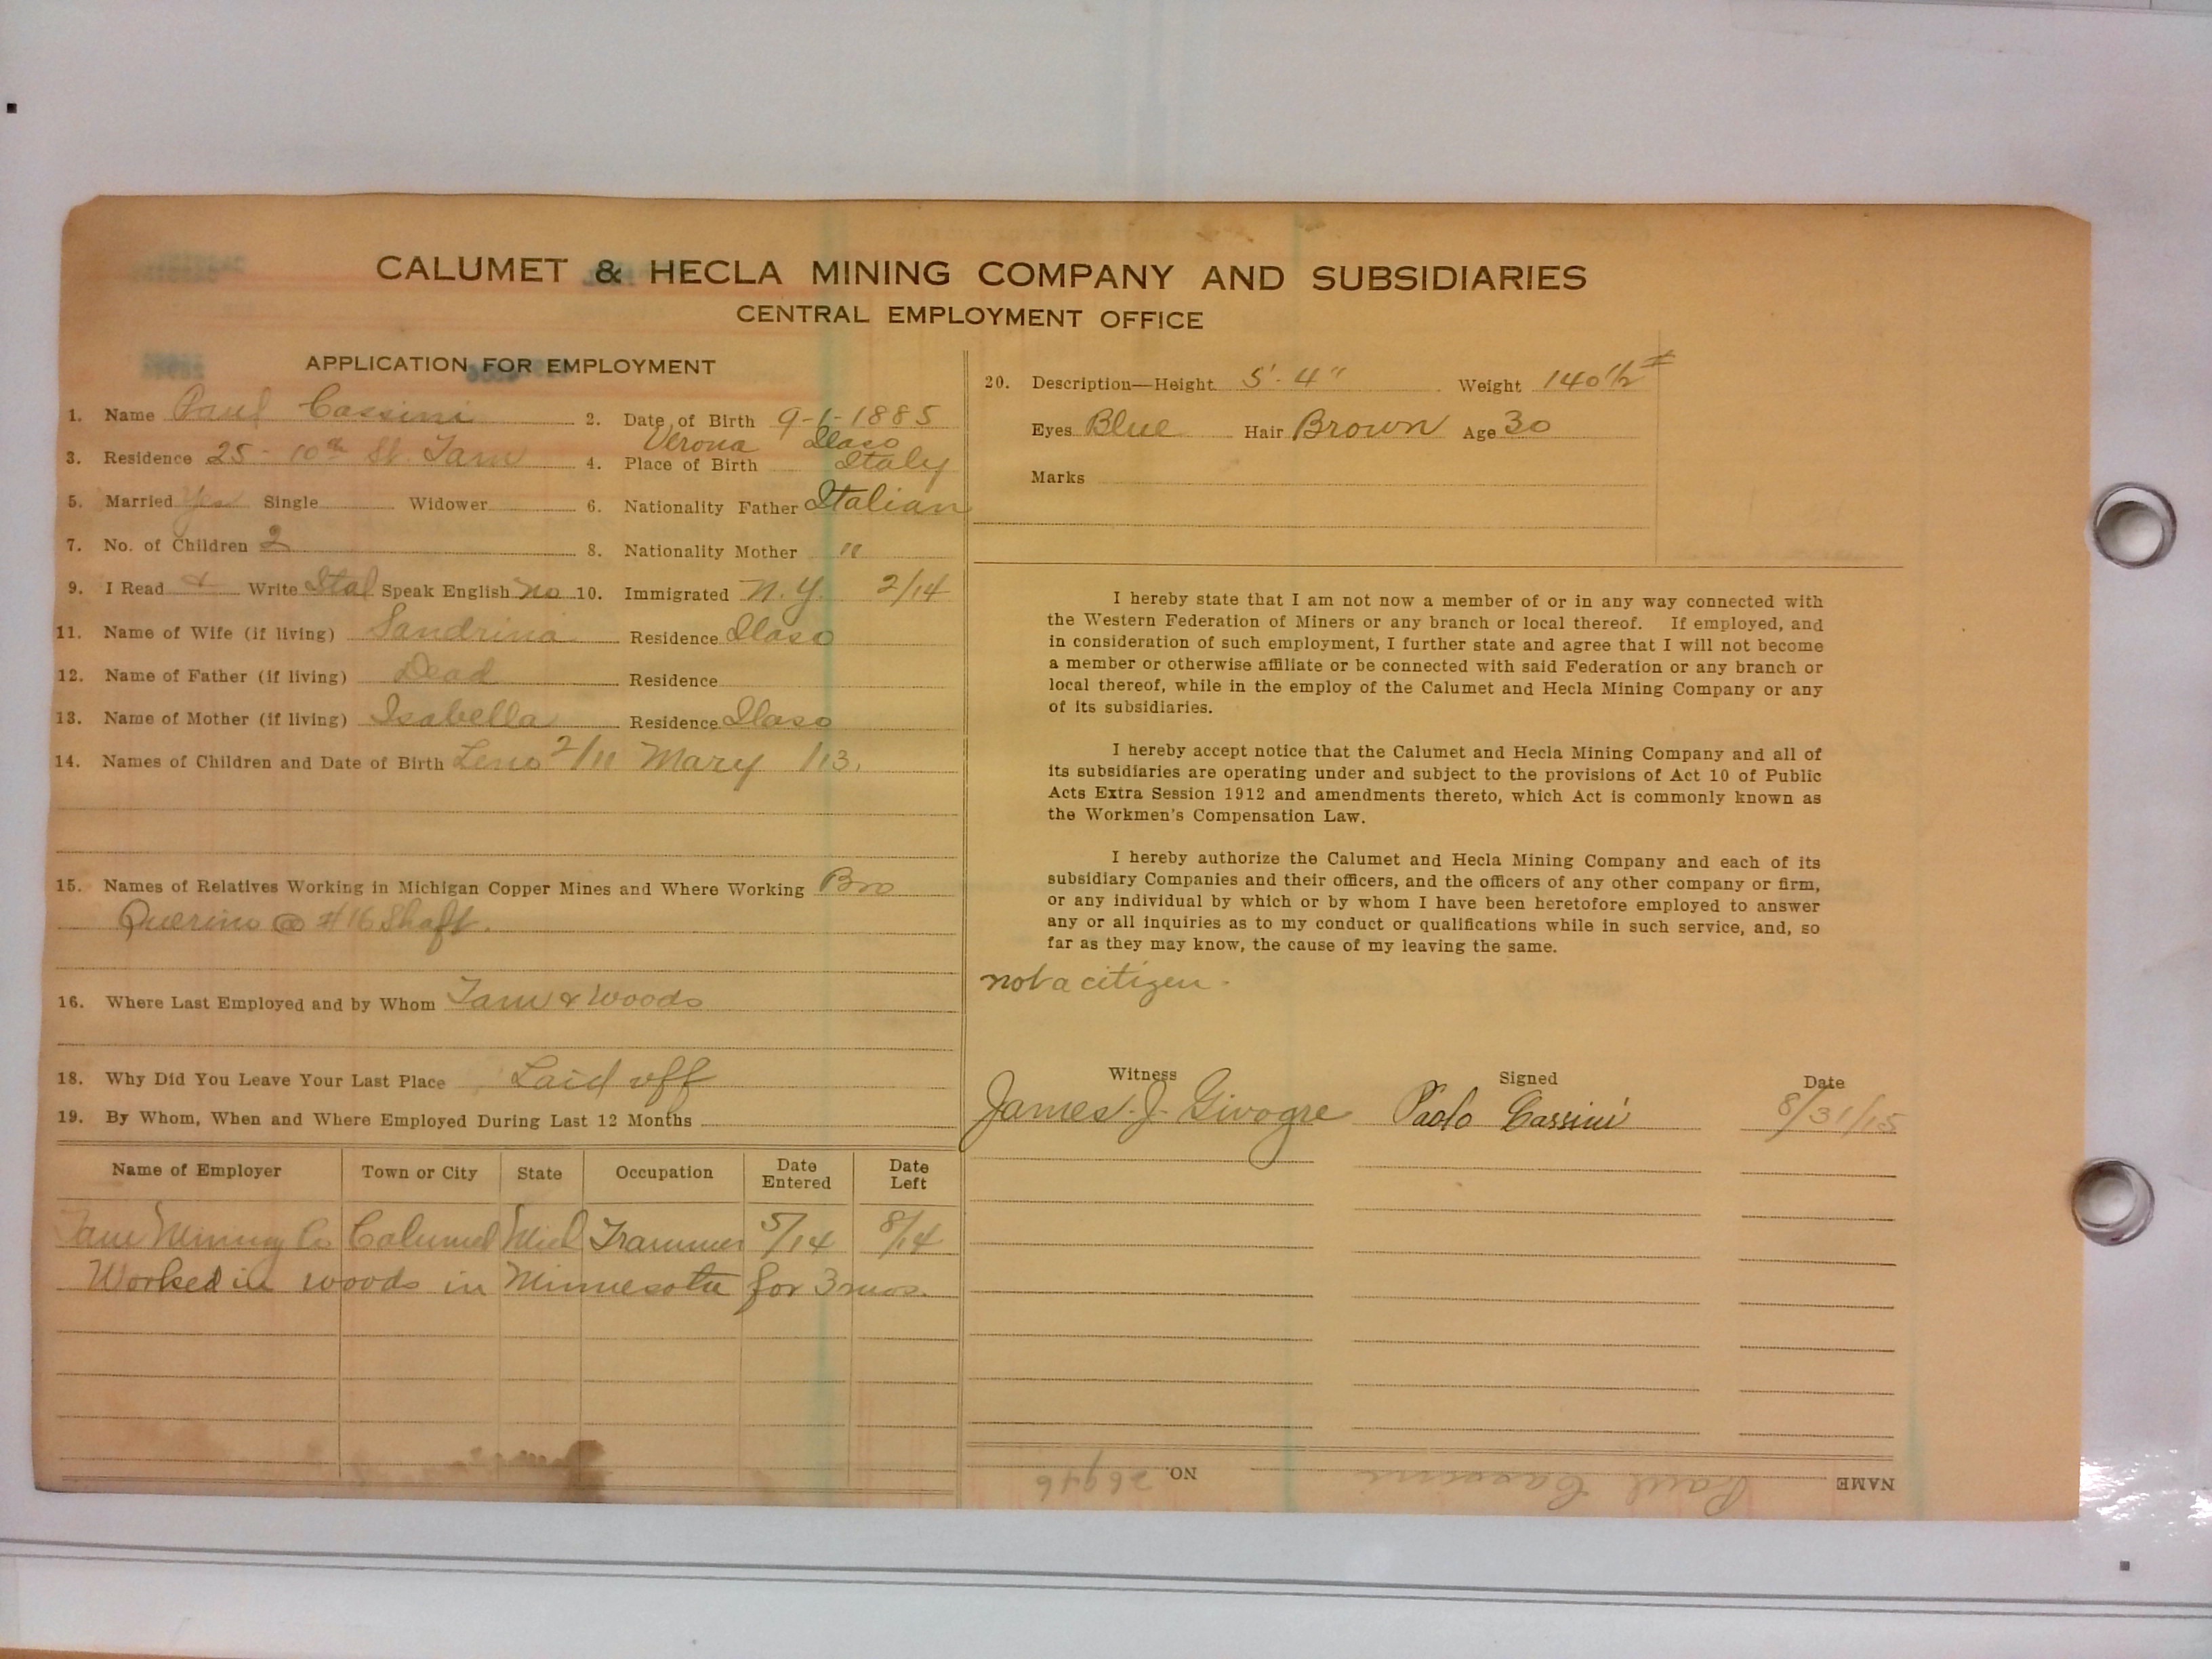 CALUMET & HECLA MINING COMPANY AND SUBSIDIARIES
CENTRAL EMPLOYMENT OFFICE
APPLICATION FOR EMPLOYMENT
1. Name Paul Cassini 2. Date of Birth 9-6-1885
Verona Ilaso
3. Residence 25 - 10th St. Tam 4. Place of Birth Italy
5. Married Yes Single Widower 6. Nationality Father Italian
7. No. of Children 2 8. Nationality Mother "
9. I Read + Write Ital Speak English no 10. Immigrated N.Y. 2/14
11. Name of Wife (if living) Sandrina Residence Ilaso
12. Name of Father (if living) Dead Residence
13. Name of Mother (if living) Isabella Residence Ilaso
14. Names of Children and Date of Birth Leno 2/11 Mary 1/13.
15. Names of Relatives Working in Michigan Copper Mines and Where Working Bro
Querino @ #16 Shaft.
16. Where Last Employed and by Whom Tam & Woods
18. Why Did You Leave Your Last Place Laid off
19. By Whom, When and Where Employed During Last 12 Months
Name of Employer Town or City State Occupation Date Entered Date Left
Tam Mining Co Calumet Mich Trammer 5/14 8/14
Worked in woods in Minnesota for 3 mos.
20. Description—Height 5'-4" Weight 140 1/2 #
Eyes Blue Hair Brown Age 30
Marks
I hereby state that I am not now a member of or in any way connected with
the Western Federation of Miners or any branch or local thereof. If employed, and
in consideration of such employment, I further state and agree that I will not become
a member or otherwise affiliate or be connected with said Federation or any branch or
local thereof, while in the employ of the Calumet and Hecla Mining Company or any
of its subsidiaries.
I hereby accept notice that the Calumet and Hecla Mining Company and all of
its subsidiaries are operating under and subject to the provisions of Act 10 of Public
Acts Extra Session 1912 and amendments thereto, which Act is commonly known as
the Workmen's Compensation Law.
I hereby authorize the Calumet and Hecla Mining Company and each of its
subsidiary Companies and their officers, and the officers of any other company or firm,
or any individual by which or by whom I have been heretofore employed to answer
any or all inquiries as to my conduct or qualifications while in such service, and, so
far as they may know, the cause of my leaving the same.
not a citizen.
Witness Signed Date
James. J. Givogre Paolo Cassini 8/31/15
NAME Paul Cassini NO. 26946